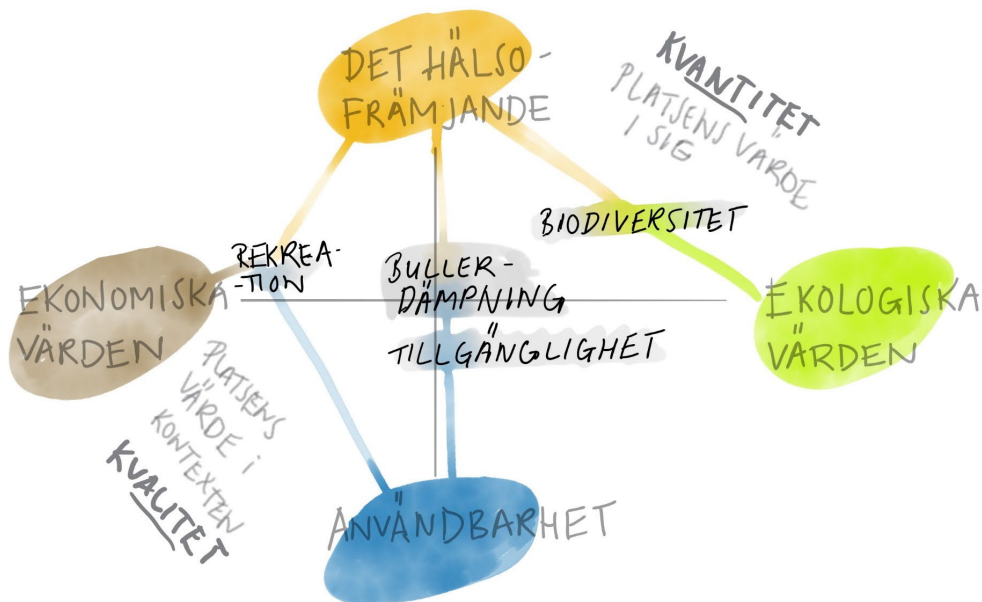 DET HÄLSO-
FRÄMJANDE
KVANTITET
PLATSENS VÄRDE
I SIG
BIODIVERSITET
REKREA-
-TION
BULLER-
DÄMPNING
TILLGÄNGLIGHET
EKONOMISKA
VÄRDEN
EKOLOGISKA
VÄRDEN
PLATSENS
VÄRDE i
KONTEXTEN
KVALITET
ANVÄNDBARHET